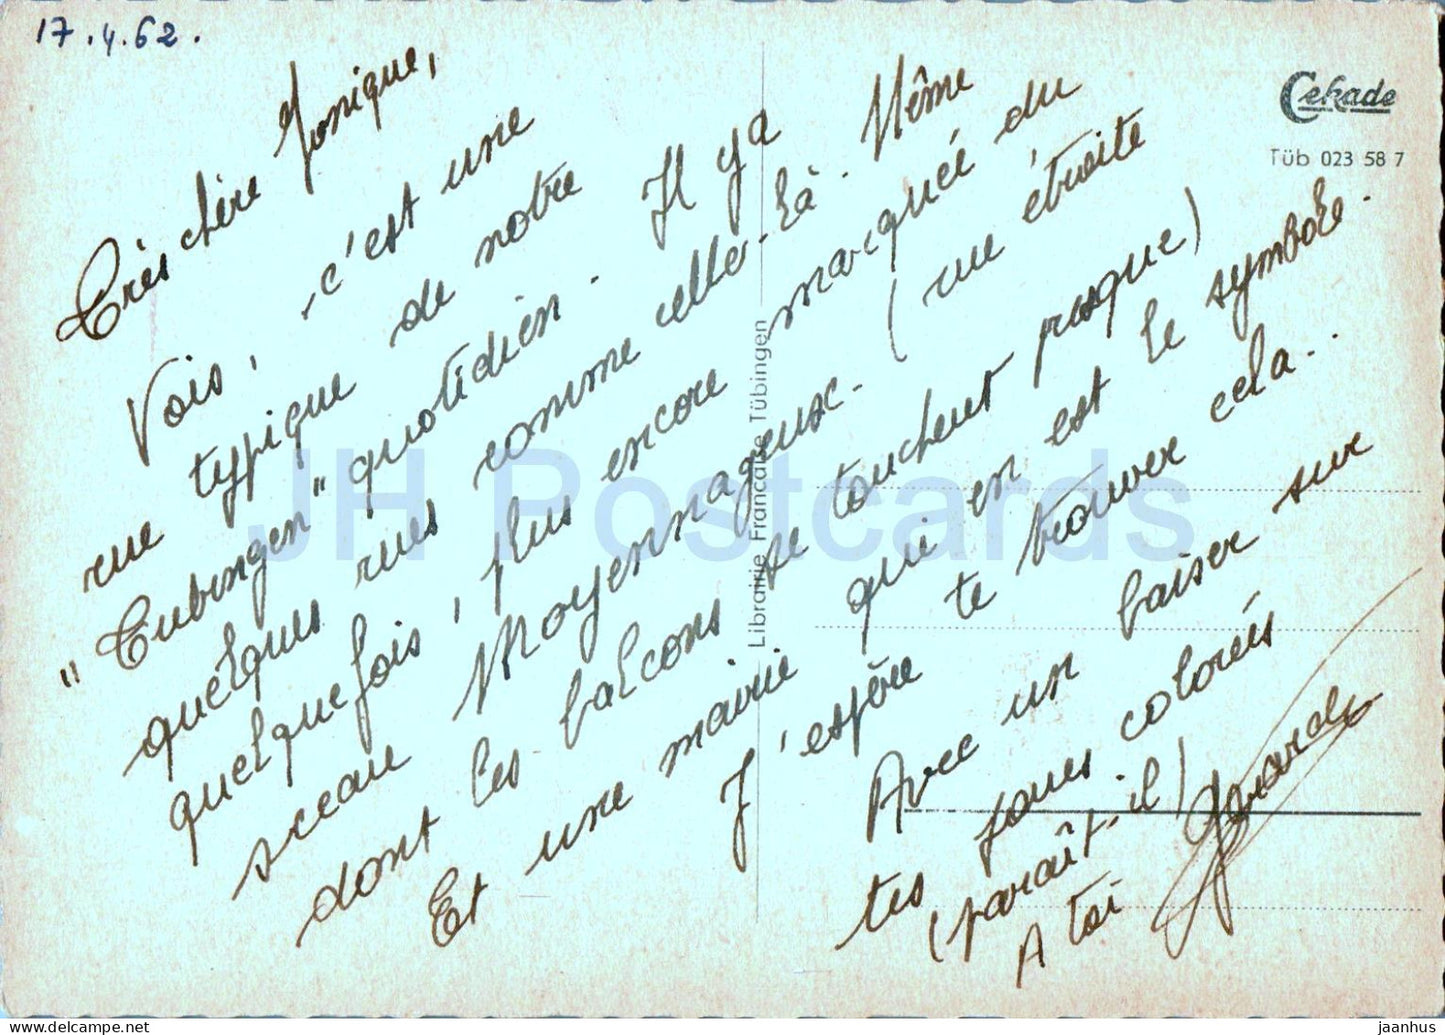 17.4.62.
Très chère Monique,
Vois, c'est une
rue typique de notre
"Tubingen" quotidien. Il y a
quelques rues comme celle-là. Même
quelquefois, plus encore marqué du
sceau Moyennageux. (rue étroite
dont les balcons se touchent presque)
Et une mairie qui en est le symbole.
J'espère te trouver cela..
Avec un baiser sur
tes joues colorées
(paraît-il)
A toi
Gérard
Cekade
Tüb 023 58 7
Librairie Francaise Tübingen
JH Postcards
jaanhus
www.delcampe.net